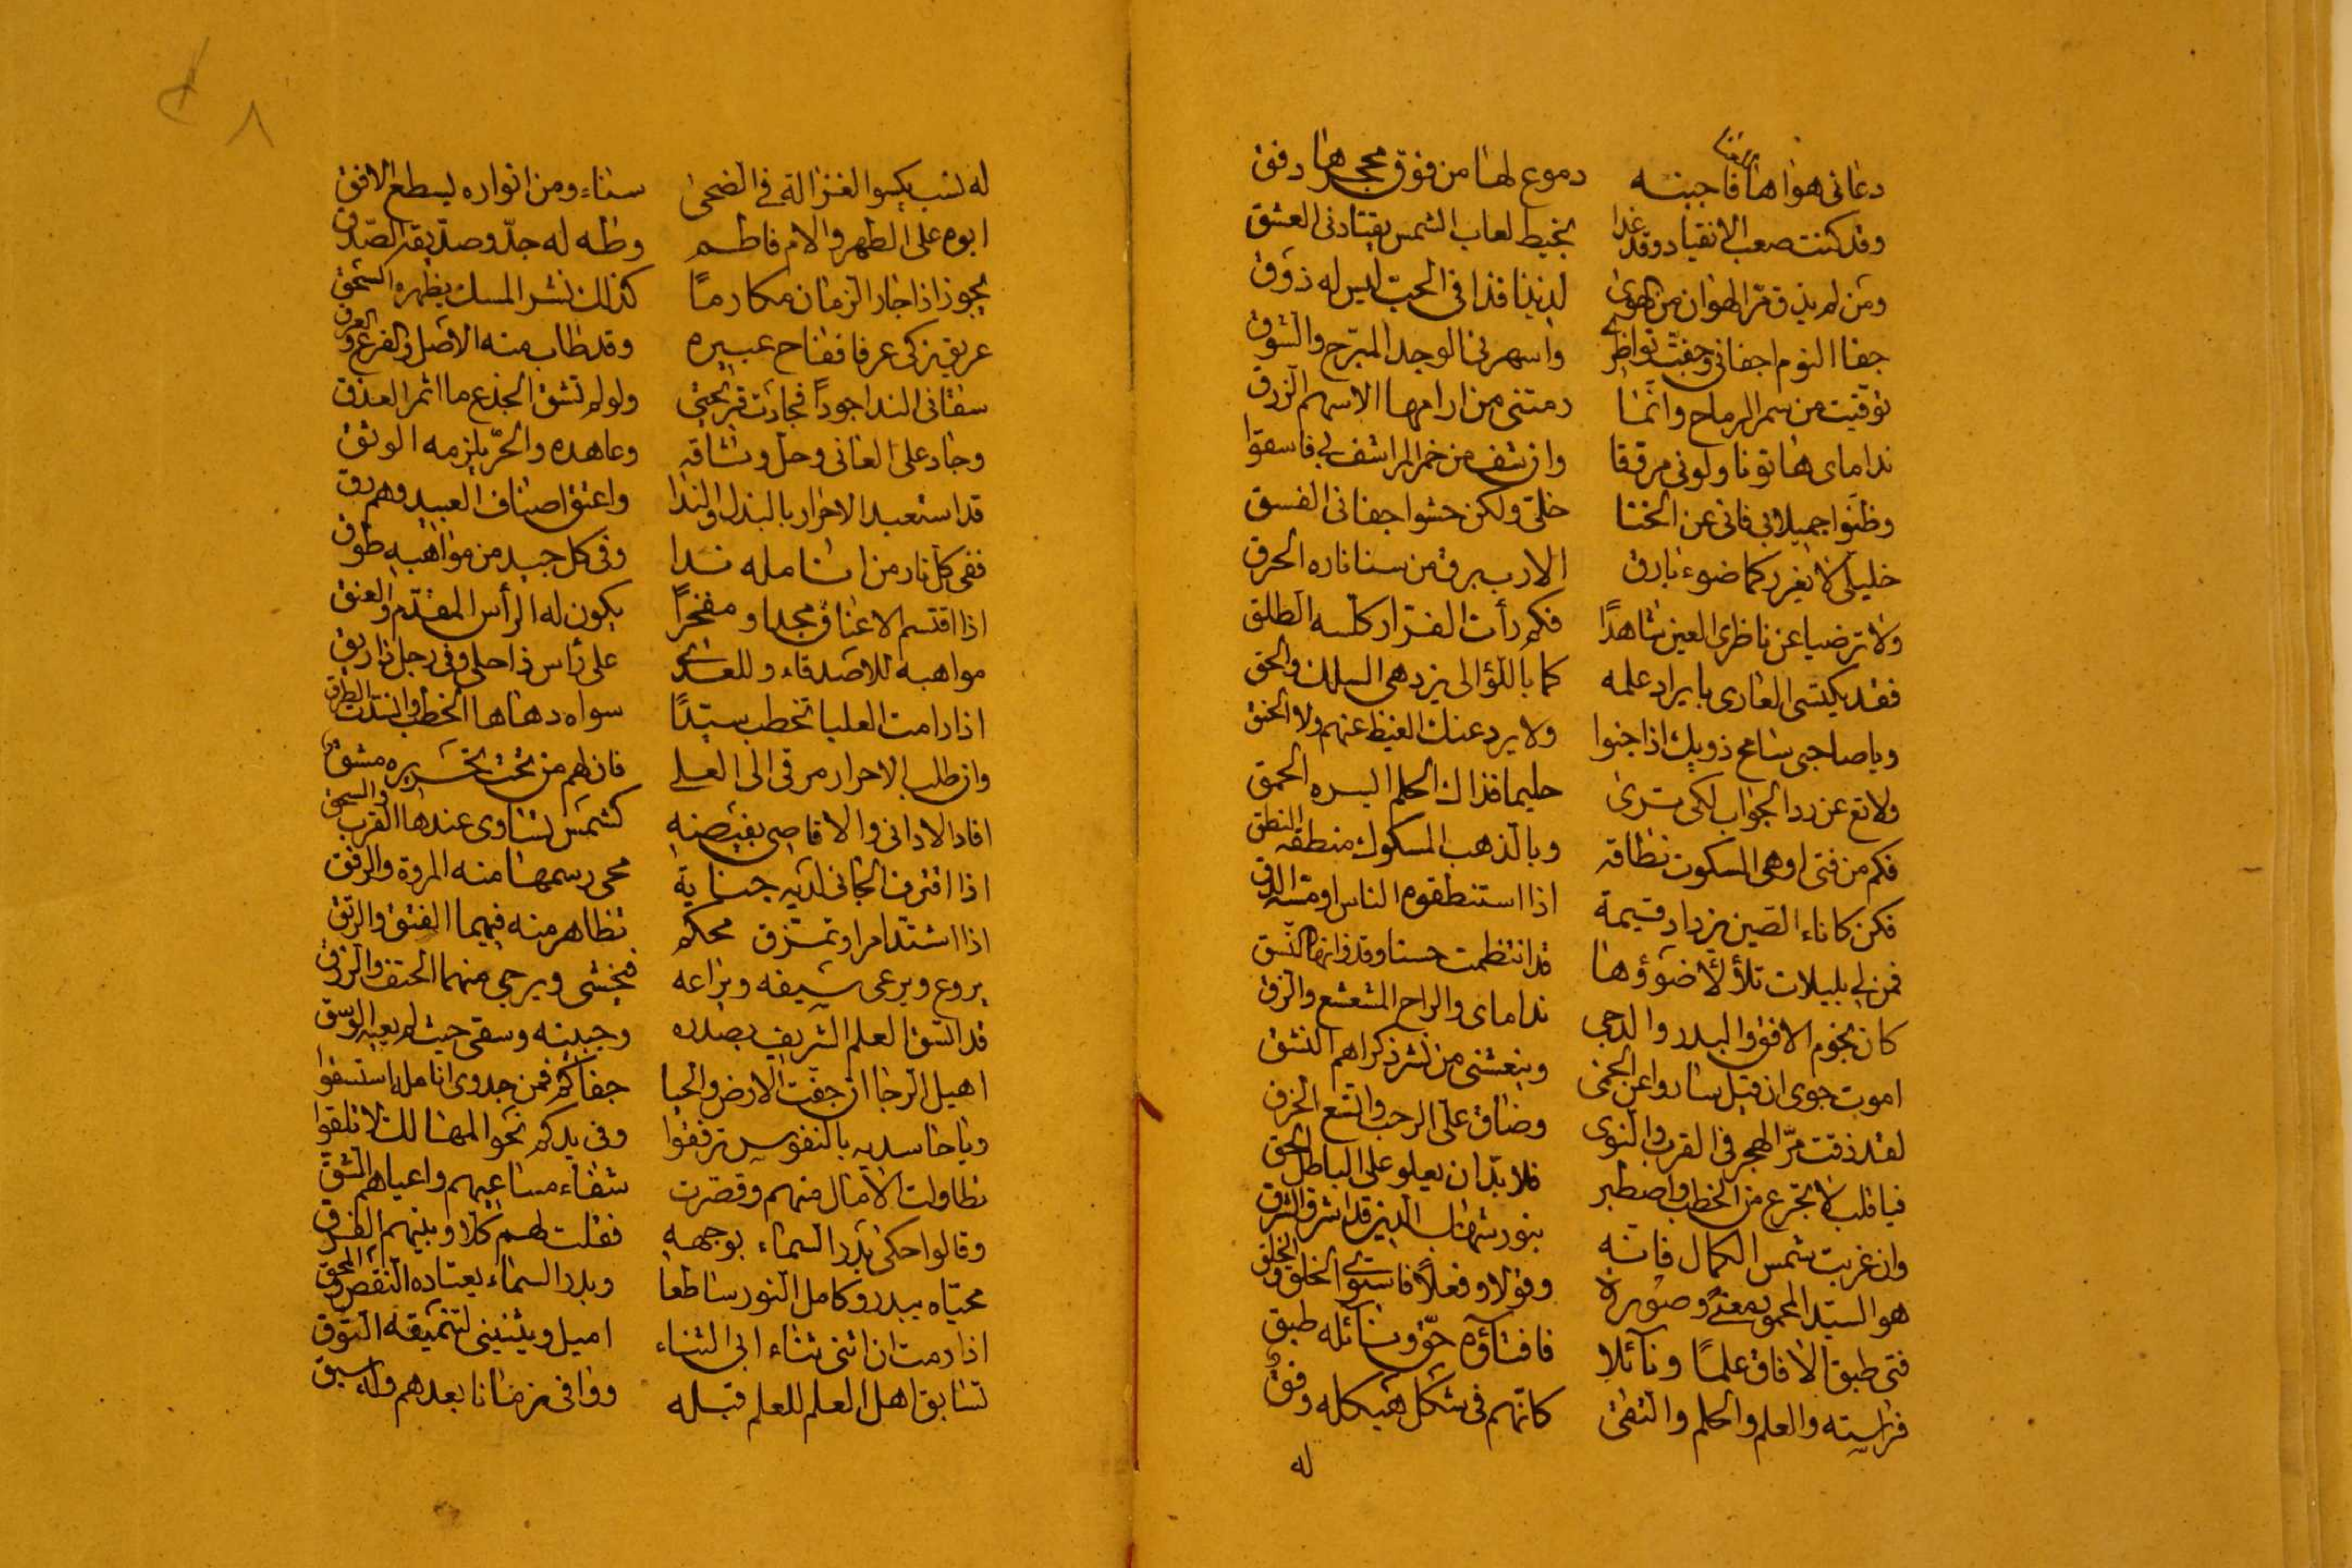 دعانى هواها فاجبنه دموع لها من فوق محجرها دفق
وقد كنت صعب الانقياد وقد غدا بخيط لعاب الشمس يقتادنى العشق
ومن لم يذق مر الهوان من الهوى لذيذا فذا فى الحب ليس له ذوق
جفا النوم اجفانى وجفت نواظرى واسهرنى الوجد المبرح والشوق
توقيت من سمر الرماح وانما رمتنى من ارامها الاسهم الزرق
نداماى هاتونا ولونى مرققا وان شف من خمر المراشف لى فاسقوا
وظنوا جميلا بى فانى عن الخنا خلى ولكن حشوا جفانى الفسق
خليلى لا يغرركما ضوء بارق الارب برق من سنا ناره الحرق
ولا ترضيا عن ناظرى العين شاهدًا
فقد يكتسى العارى بايراد علمه كما باللؤالى يزدهى السلك والحق
ويا صاحبى سامح ذويك اذا جنوا ولا يرد عنك الغيظ عنهم ولا الحنق
ولا تع عن رد الجواب لكى ترى حليما فذاك الحلم البسه الحمق
فكم من فتى اوهى السكوت نطاقه وبالذهب المسكوك منطقه النطق
فكن كاناء الصين يزداد قيمة اذا استنطقوه الناس او مسه الدق
فمن لى بليلات تلألأ ضوؤها قد انتظمت حسنا وقد زانها النسق
كان نجوم الافق والبدر والدجى نداماى والراح المشعشع والزق
اموت جوى ان قيل ساروا عن الحمى وينعشنى من نشر ذكراهم النشق
لقد ذقت مر الهجر فى القرب والنوى وضاق على الرحب واتسع الخرق
فيا قلب لا تجزع من الخطب واصطبر فلا بد ان يعلو على الباطل الحق
وان غربت شمس الكمال فانه بنور شهاب الدين قد اشرق الشرق
هو السيد المحمود معنى وصورة وقولا وفعلا فاستوى الخلق والخلق
فتى طبق الافاق علمًا ونآئلا فافتآؤه حق ونائله طبق
فراسته والعلم والحلم والتقى كانهم فى شكل هيكله وفق
له
له نسب يكسوا الغزالة فى الضحى سناء ومن انواره يسطع الافق
ابوه على الطهر والام فاطم وطه له جد وصديقه الصدق
يجوز اذا جار الزمان مكارمًا كذلك نشر المسك يظهره السحق
عريق زكى عرفا ففاح عبيره وقد طاب منه الاصل والفرع والعرق
سقانى الندا جودًا فجادت قريحتى ولو لم تشق الجذع ما اثمر العذق
وجاد على العانى وحل وثاقه وعاهده والحر يلزمه الوثق
قد استعبد الاحرار بالبذل والندا واعتق اصناف العبيد وهم رق
ففى كل نار من انامله ندا وفى كل جيد من مواهبه طوق
اذا اقتسم الاعناق مجدا ومفخرًا يكون له الرأس المقدم والعنق
مواهبه للاصدقاء وللعدى على رأس ذا حلى وفى رجل ذا ربق
اذا رامت العليا تخطب سيدًا سواه دهاها الخطب وانسدت الطرق
وان طلب الاحرار مرقى الى العلى فان لهم من تحت تحريره مشق
افاد الادانى والاقاصى بفيضه كشمس تساوى عندها القرب والسحق
اذا اقترف الجانى لديه جناية محى رسمها منه المروة والرفق
اذا اشتد امر او تمزق محكم تظاهر منه فيهما الفتق والرتق
يروع ويرعى سيفه ويراعه فيخشى ويرجى منهما الحتف والرزق
قد اتسق العلم الشريف بصدره وجبينه وسقى حيث لم يعيه الوسق
اهيل الرجا ان جفت الارض والحيا جفاكم فمن جدوى انامله استسقوا
ويا حاسديه بالنفوس ترفقوا وفى يدكم نحو المهالك لا تلقوا
تطاولت الامال منهم وقصرت شفاء مساعيهم واعياهم الشق
وقالوا حكى بدر السماء بوجهه فقلت لهم كلا وبينهم الفرق
محياه يبدو كامل النور ساطعا وبدر السماء يعتاده النقص والمحق
اذا رمت ان اثنى ثناء ابى الثناء اميل ويثنينى لتنميقه التوق
تسابق اهل العلم للعلم قبله ووافى زمانا بعدهم وله سبق
٨